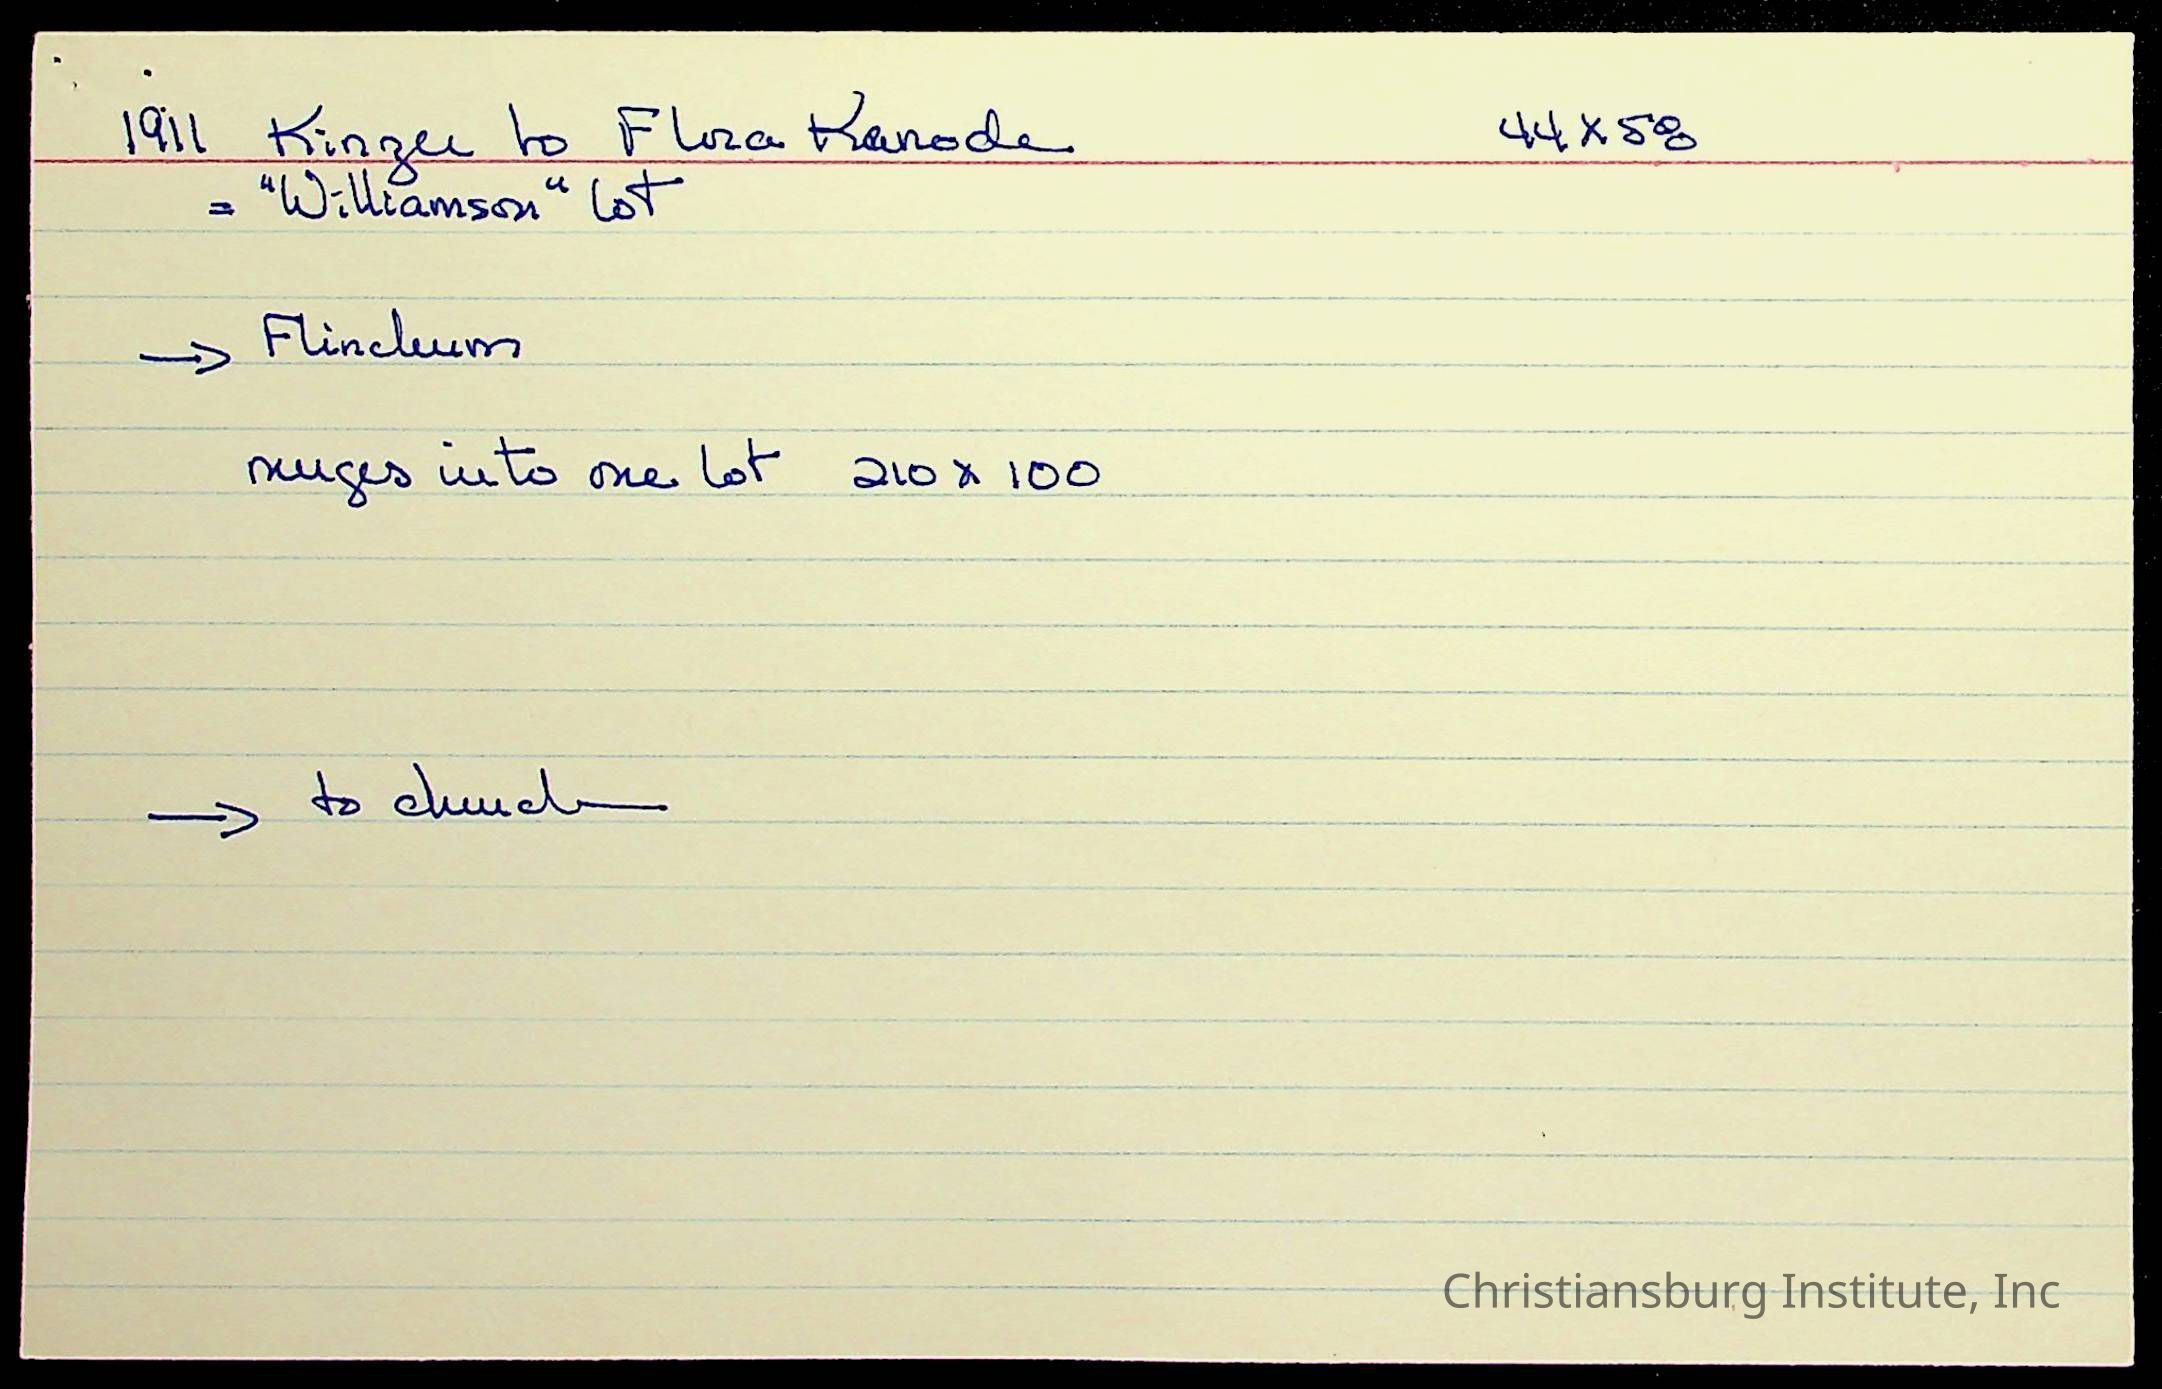 1911 Kinzer to Flora Kanode 44 x 58
= "Williamson" lot
→ Flinchum
merges into one lot 210 x 100
→ to church
Christiansburg Institute, Inc